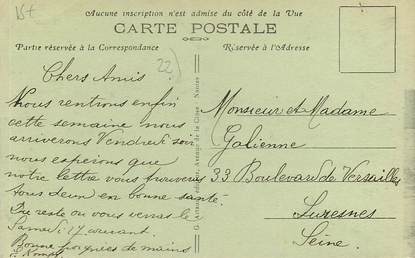 Aucune inscription n'est admise du côté de la Vue
CARTE POSTALE
Partie réservée à la Correspondance
Réservée à l'Adresse
22
Chers Amis
Nous rentrons enfin
cette semaine nous
arriverons Vendredi soir
nous espérons que
notre lettre vous trouvera
tous deux en bonne santé
Du reste on vous verra le
Samedi 17 courant.
Bonne poignées de mains
Monsieur et Madame
Galienne
33 Boulevard de Versailles
Suresnes
Seine.